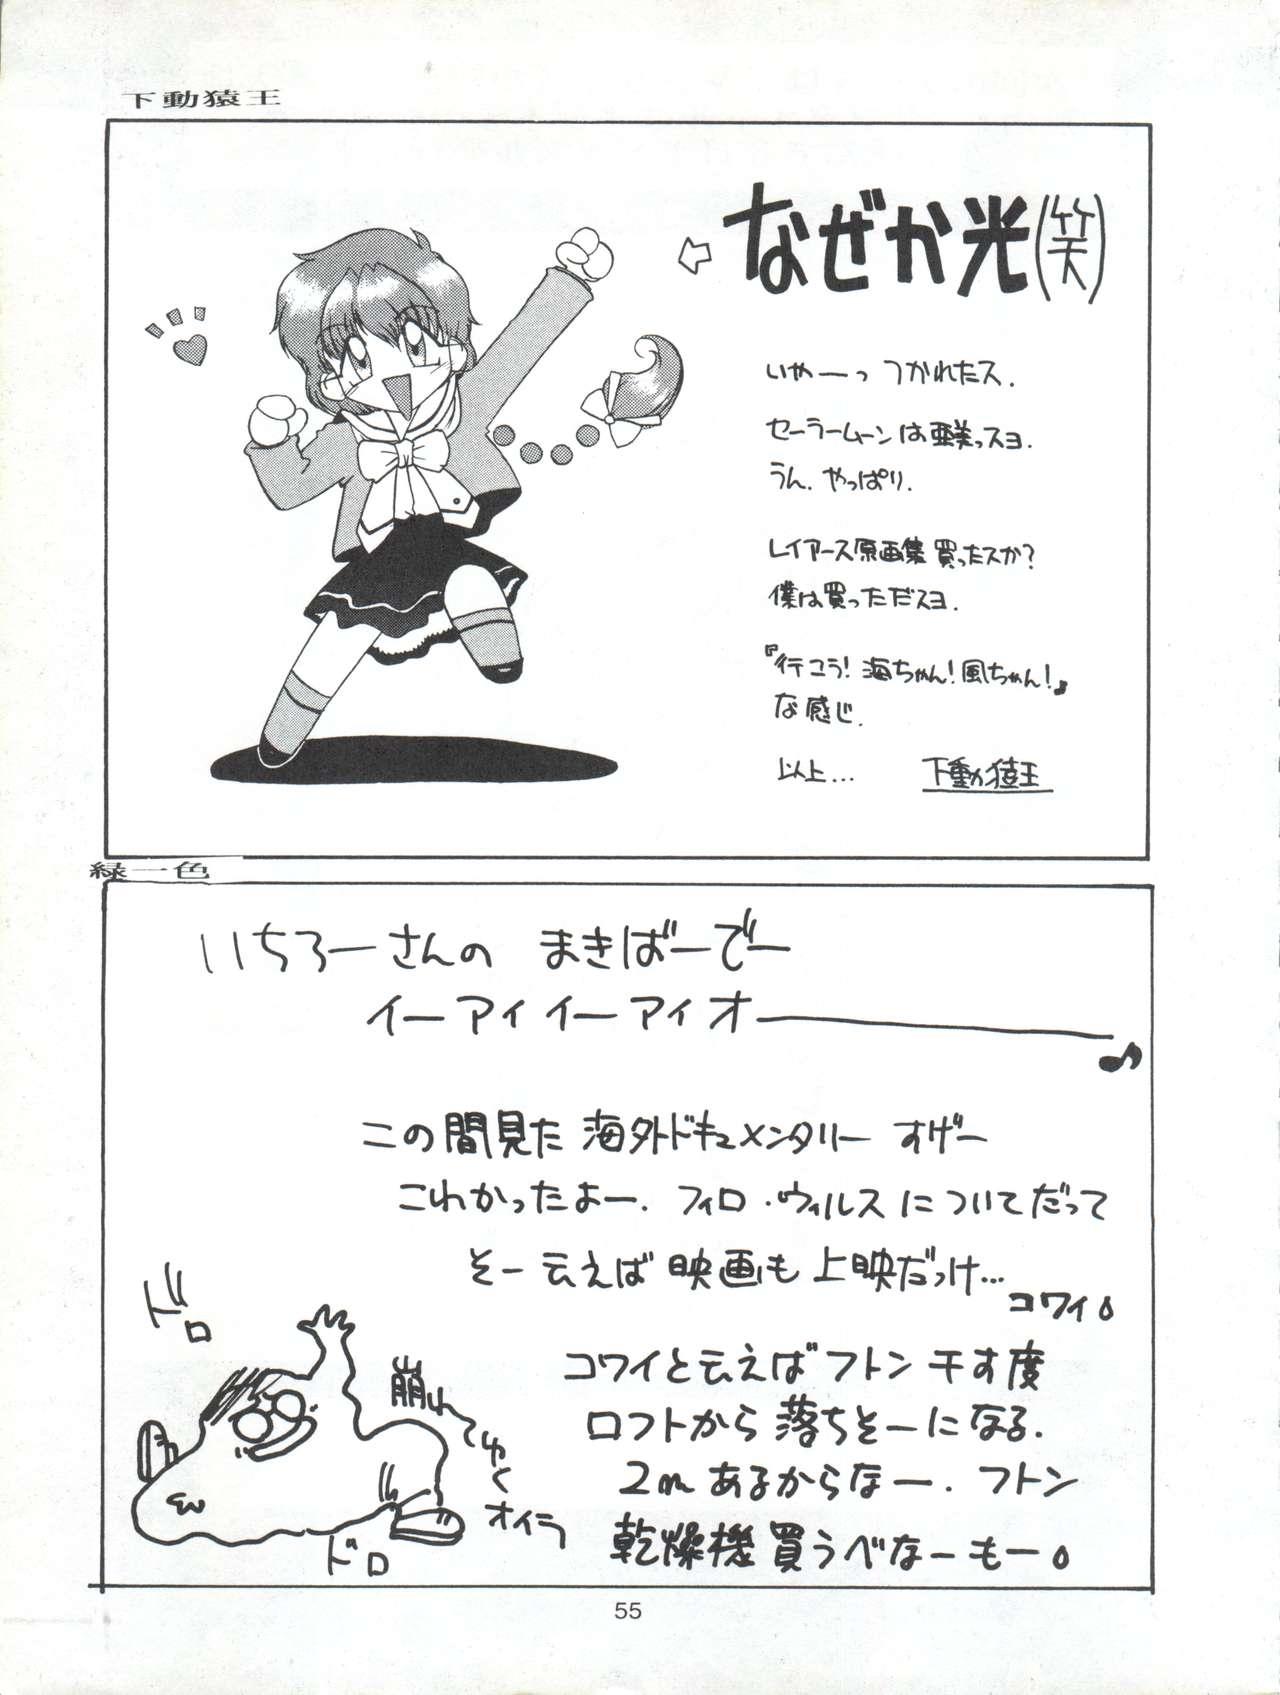 下動猿王
なぜか光(笑)
いやーっ つかれたス.
セーラームーンは亜美っスヨ.
うん. やっぱり.
レイアース原画集買ったスか?
僕は買っただスヨ.
『行こう! 海ちゃん! 風ちゃん!』
な感じ.
以上... 下動猿王
緑一色
いちろーさんの まきばーでー
イーアイイーアイオー♪
この間見た海外ドキュメンタリー すげー
こわかったよー. フィロ・ウィルスについてだって
そー云えば映画も上映だっけ...
コワイ。
コワイと云えばフトン干す度
ロフトから落ちそーになる.
2mあるからなー. フトン
乾燥機買うべなーもー。
ドロ
崩れてゆくオイラ
ドロ
55